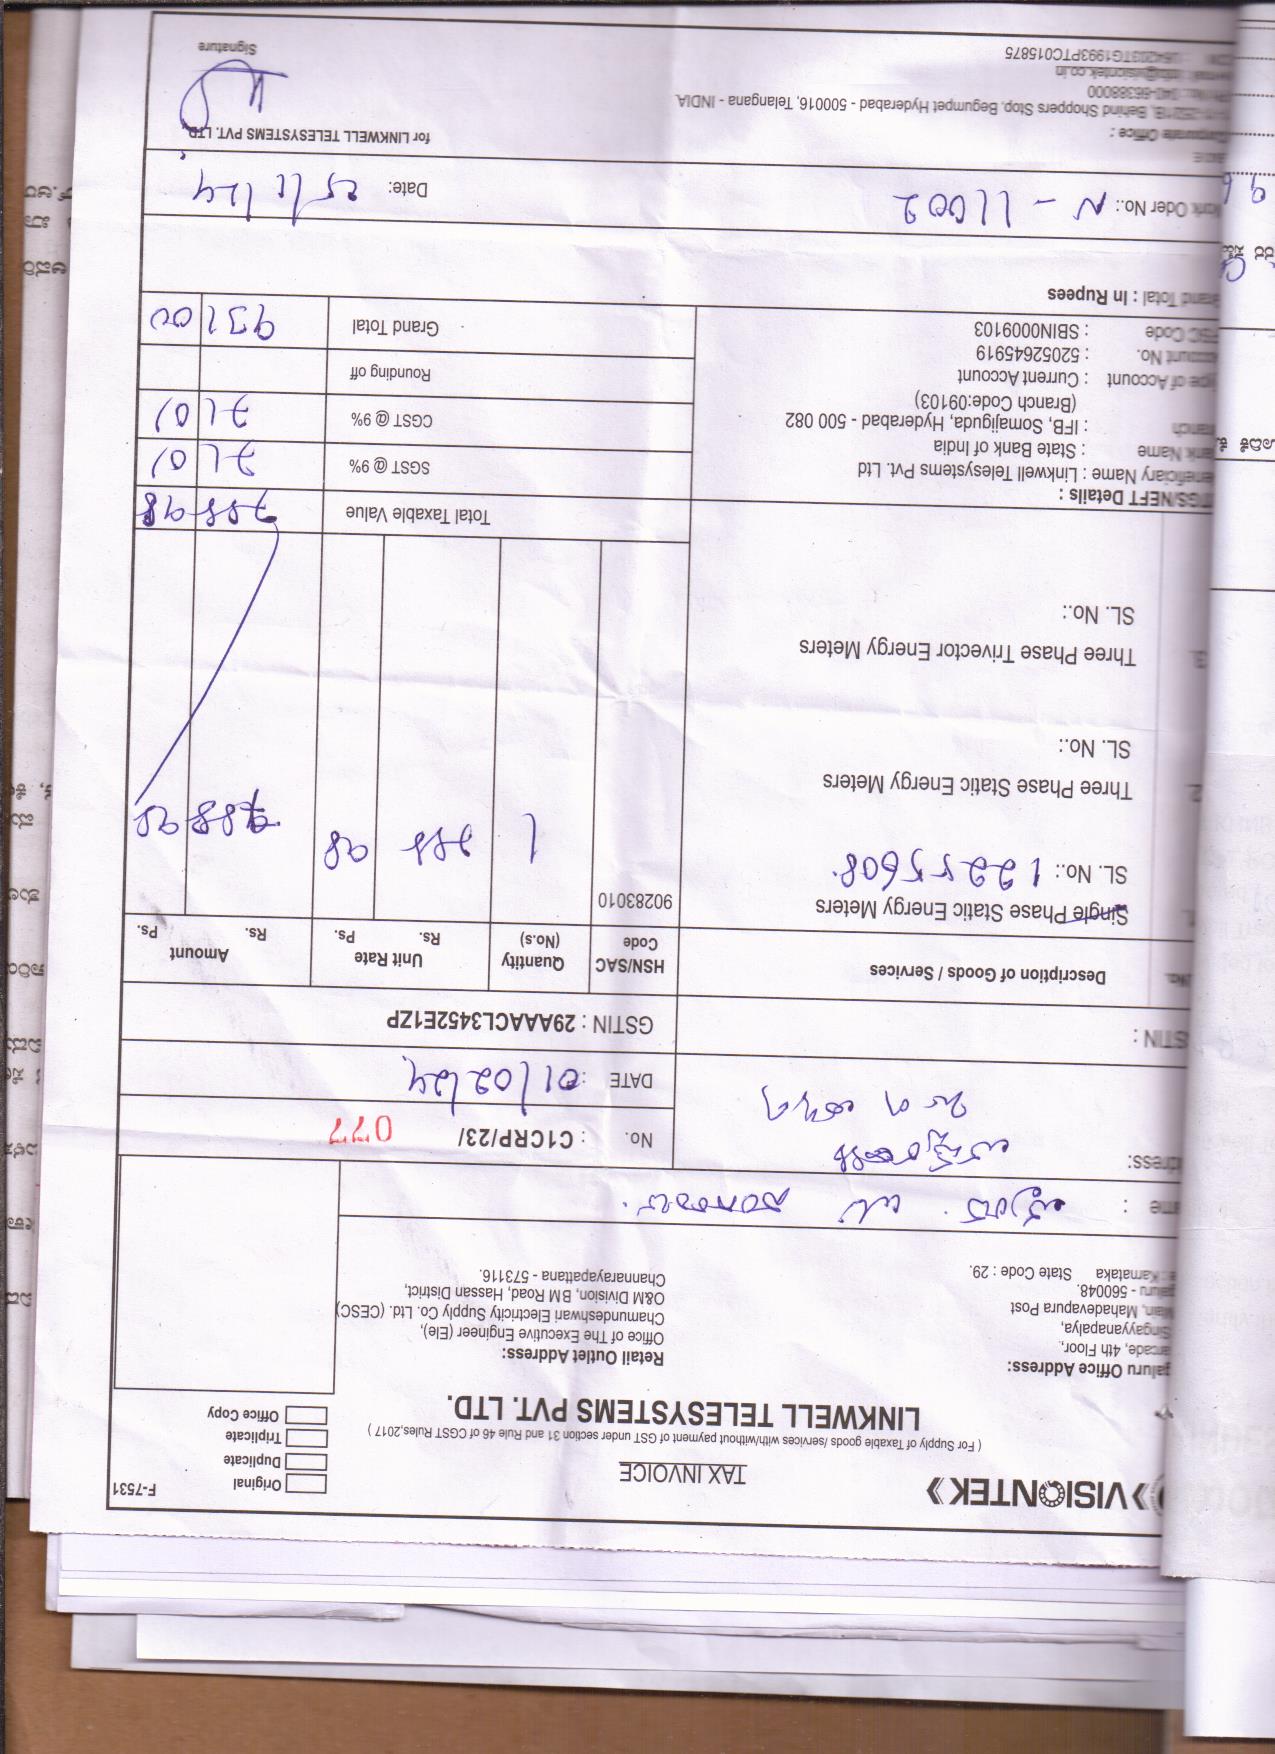 VISIONTEK
TAX INVOICE
( For Supply of Taxable goods /services with/without payment of GST under section 31 and Rule 46 of CGST Rules,2017 )
LINKWELL TELESYSTEMS PVT. LTD.
Original
Duplicate
Triplicate
Office Copy
F-7531
galuru Office Address:
arcade, 4th Floor,
Singayyanapalya,
Main, Mahadevapura Post
galuru - 560048.
: Karnataka State Code : 29.
Retail Outlet Address:
Office of The Executive Engineer (Ele),
Chamundeshwari Electricity Supply Co. Ltd. (CESC)
O&M Division, BM Road, Hassan District,
Channarayapattana - 573116.
ame :
dress:
No. : C1CRP/23/ 077
DATE : 01/02/24
STIN :
GSTIN : 29AAACL3452E1ZP
No. Description of Goods / Services HSN/SAC Code Quantity (No.s) Unit Rate Rs. Ps. Amount Rs. Ps.
1. Single Phase Static Energy Meters 90283010
SL. No.: 12255608 1 788 98 788 98
2. Three Phase Static Energy Meters
SL. No.:
3. Three Phase Trivector Energy Meters
SL. No.:
Total Taxable Value 788 98
SGST @ 9% 71 01
CGST @ 9% 71 01
Rounding off
Grand Total 931 00
TGS/NEFT Details :
eneficiary Name : Linkwell Telesystems Pvt. Ltd
ank Name : State Bank of India
ranch : IFB, Somajiguda, Hyderabad - 500 082
(Branch Code:09103)
ype of Account : Current Account
ccount No. : 52052645919
FISC Code : SBIN0009103
Grand Total : In Rupees
Work Oder No.: N - 11002
Date:
Corporate Office :
Behind Shoppers Stop, Begumpet Hyderabad - 500016, Telangana - INDIA.
040-66388000
info@visiontek.co.in
U64203TG1993PTC015875
for LINKWELL TELESYSTEMS PVT. LTD.
Signature